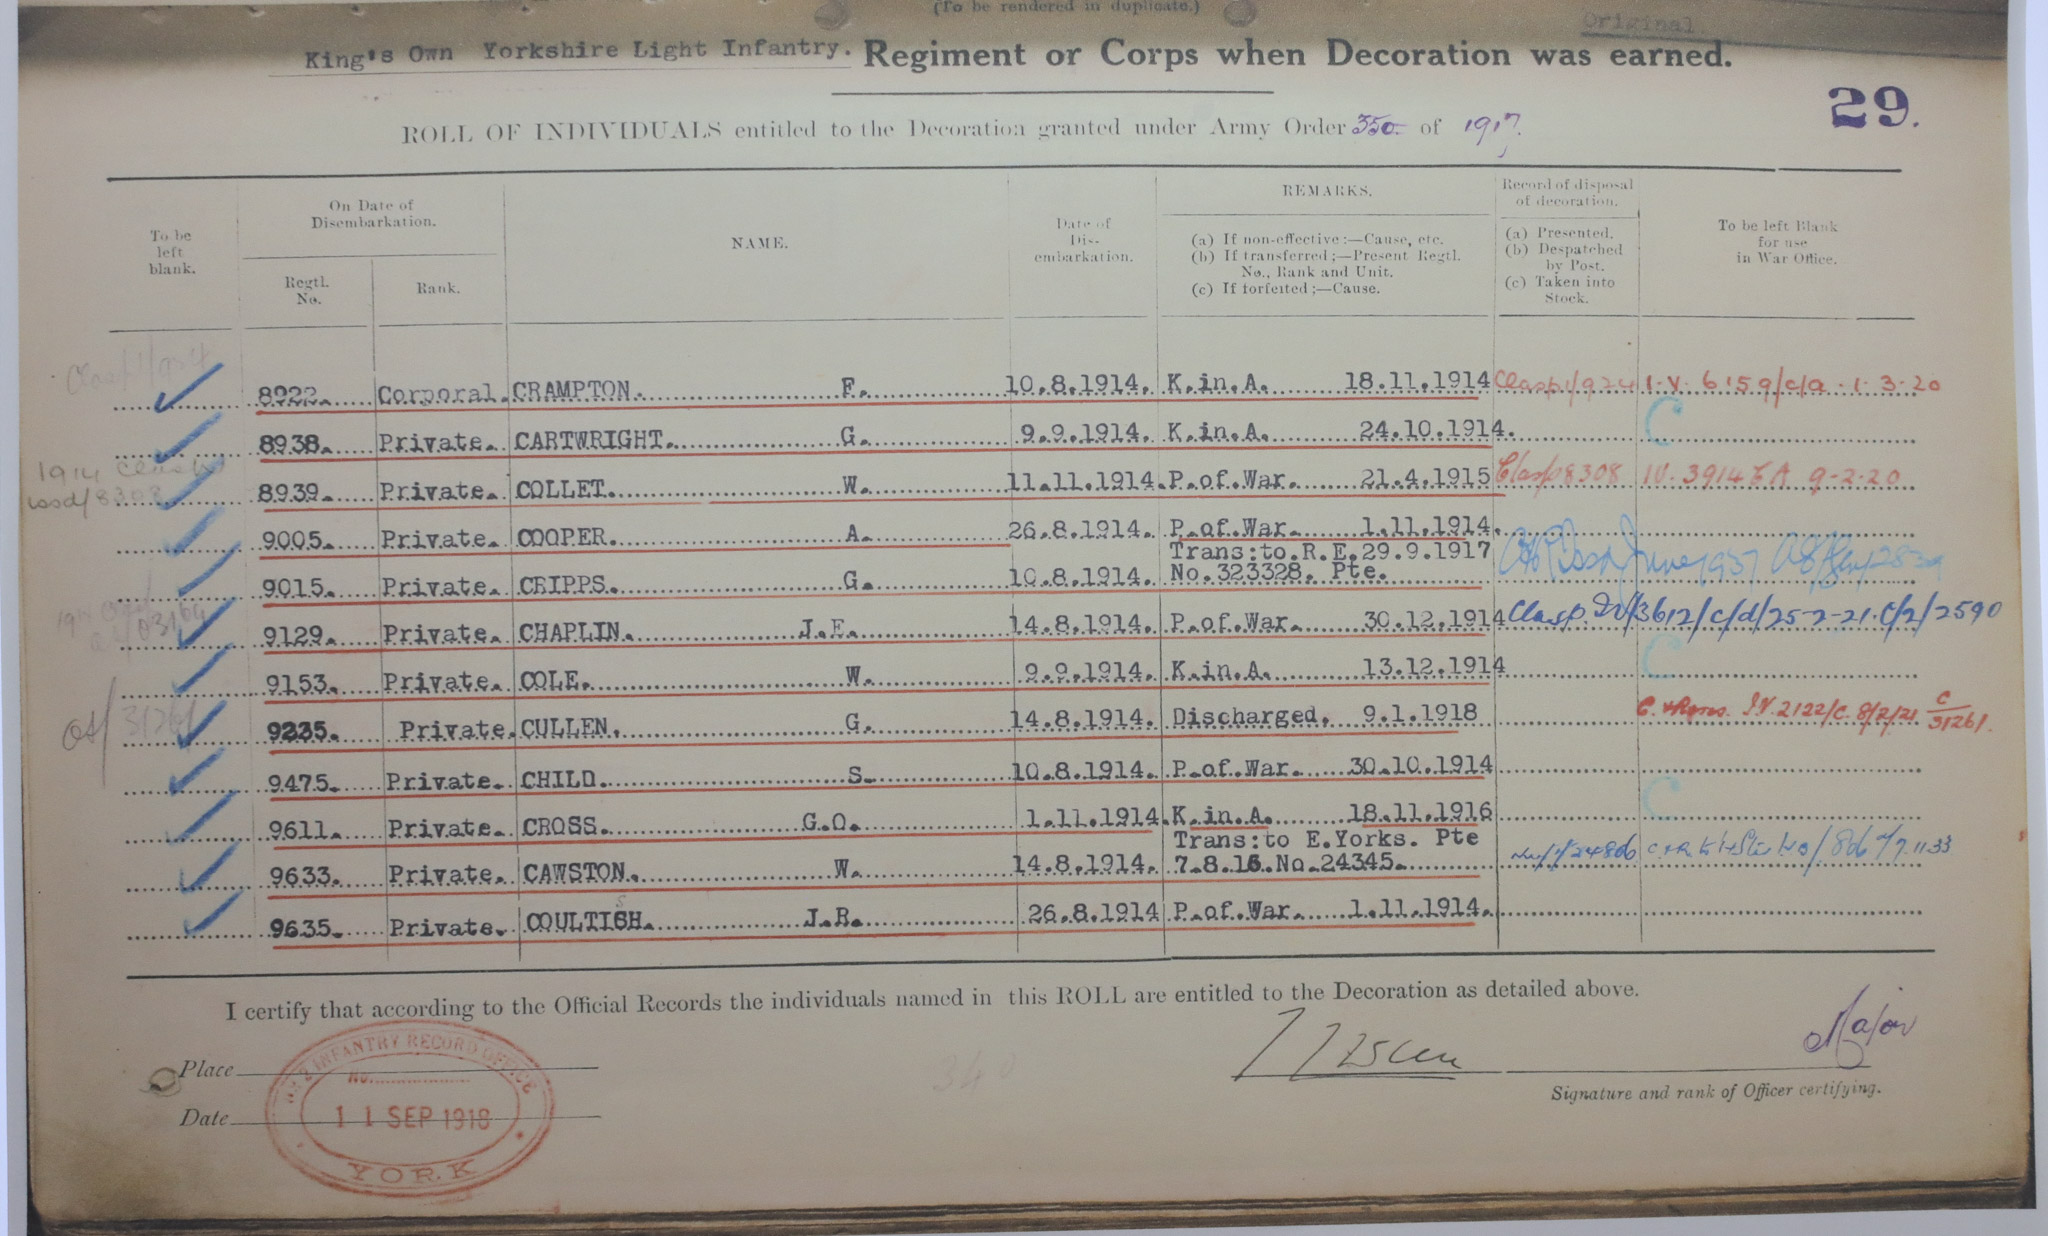 (To be rendered in duplicate.)
Original
King's Own Yorkshire Light Infantry. Regiment or Corps when Decoration was earned.
29.
ROLL OF INDIVIDUALS entitled to the Decoration granted under Army Order 350 of 1917.
To be left blank.
On Date of Disembarkation.
Regtl. No.
Rank.
NAME.
Date of Dis-embarkation.
REMARKS.
(a) If non-effective :—Cause, etc.
(b) If transferred ;—Present Regtl. No., Rank and Unit.
(c) If forfeited ;—Cause.
Record of disposal of decoration.
(a) Presented.
(b) Despatched by Post.
(c) Taken into Stock.
To be left Blank for use in War Office.
8922. Corporal. CRAMPTON. F. 10.8.1914. K.in.A. 18.11.1914 Clasp 1/924 I.V. 6159/C/A 1.3.20
8938. Private. CARTWRIGHT. G. 9.9.1914. K.in.A. 24.10.1914. C
8939. Private. COLLET. W. 11.11.1914. P.of.War. 21.4.1915 Clasp 8308 IV. 3914 EA 9-2-20
9005. Private. COOPER. A. 26.8.1914. P.of.War. 1.11.1914.
9015. Private. CRIPPS. G. 10.8.1914. Trans:to.R.E.29.9.1917
No.323328. Pte.
9129. Private. CHAPLIN. J.E. 14.8.1914. P.of.War. 30.12.1914 Clasp. IV/3612/C/d/25-2-21.C/2/2590
9153. Private. COLE. W. 9.9.1914. K.in.A. 13.12.1914 C
9235. Private. CULLEN. G. 14.8.1914. Discharged. 9.1.1918 IV 2122/C. 8/2/21 C/31261.
9475. Private. CHILD. S. 10.8.1914. P.of.War. 30.10.1914
9611. Private. CROSS. G.O. 1.11.1914. K.in.A. 18.11.1916 C
9633. Private. CAWSTON. W. 14.8.1914. Trans:to E.Yorks. Pte
7.8.16.No.24345.
9635. Private. COULTISH. J.R. 26.8.1914 P.of.War. 1.11.1914.
I certify that according to the Official Records the individuals named in this ROLL are entitled to the Decoration as detailed above.
Major
Place
Date
Signature and rank of Officer certifying.
INFANTRY RECORD OFFICE
No.
11 SEP 1918
YORK